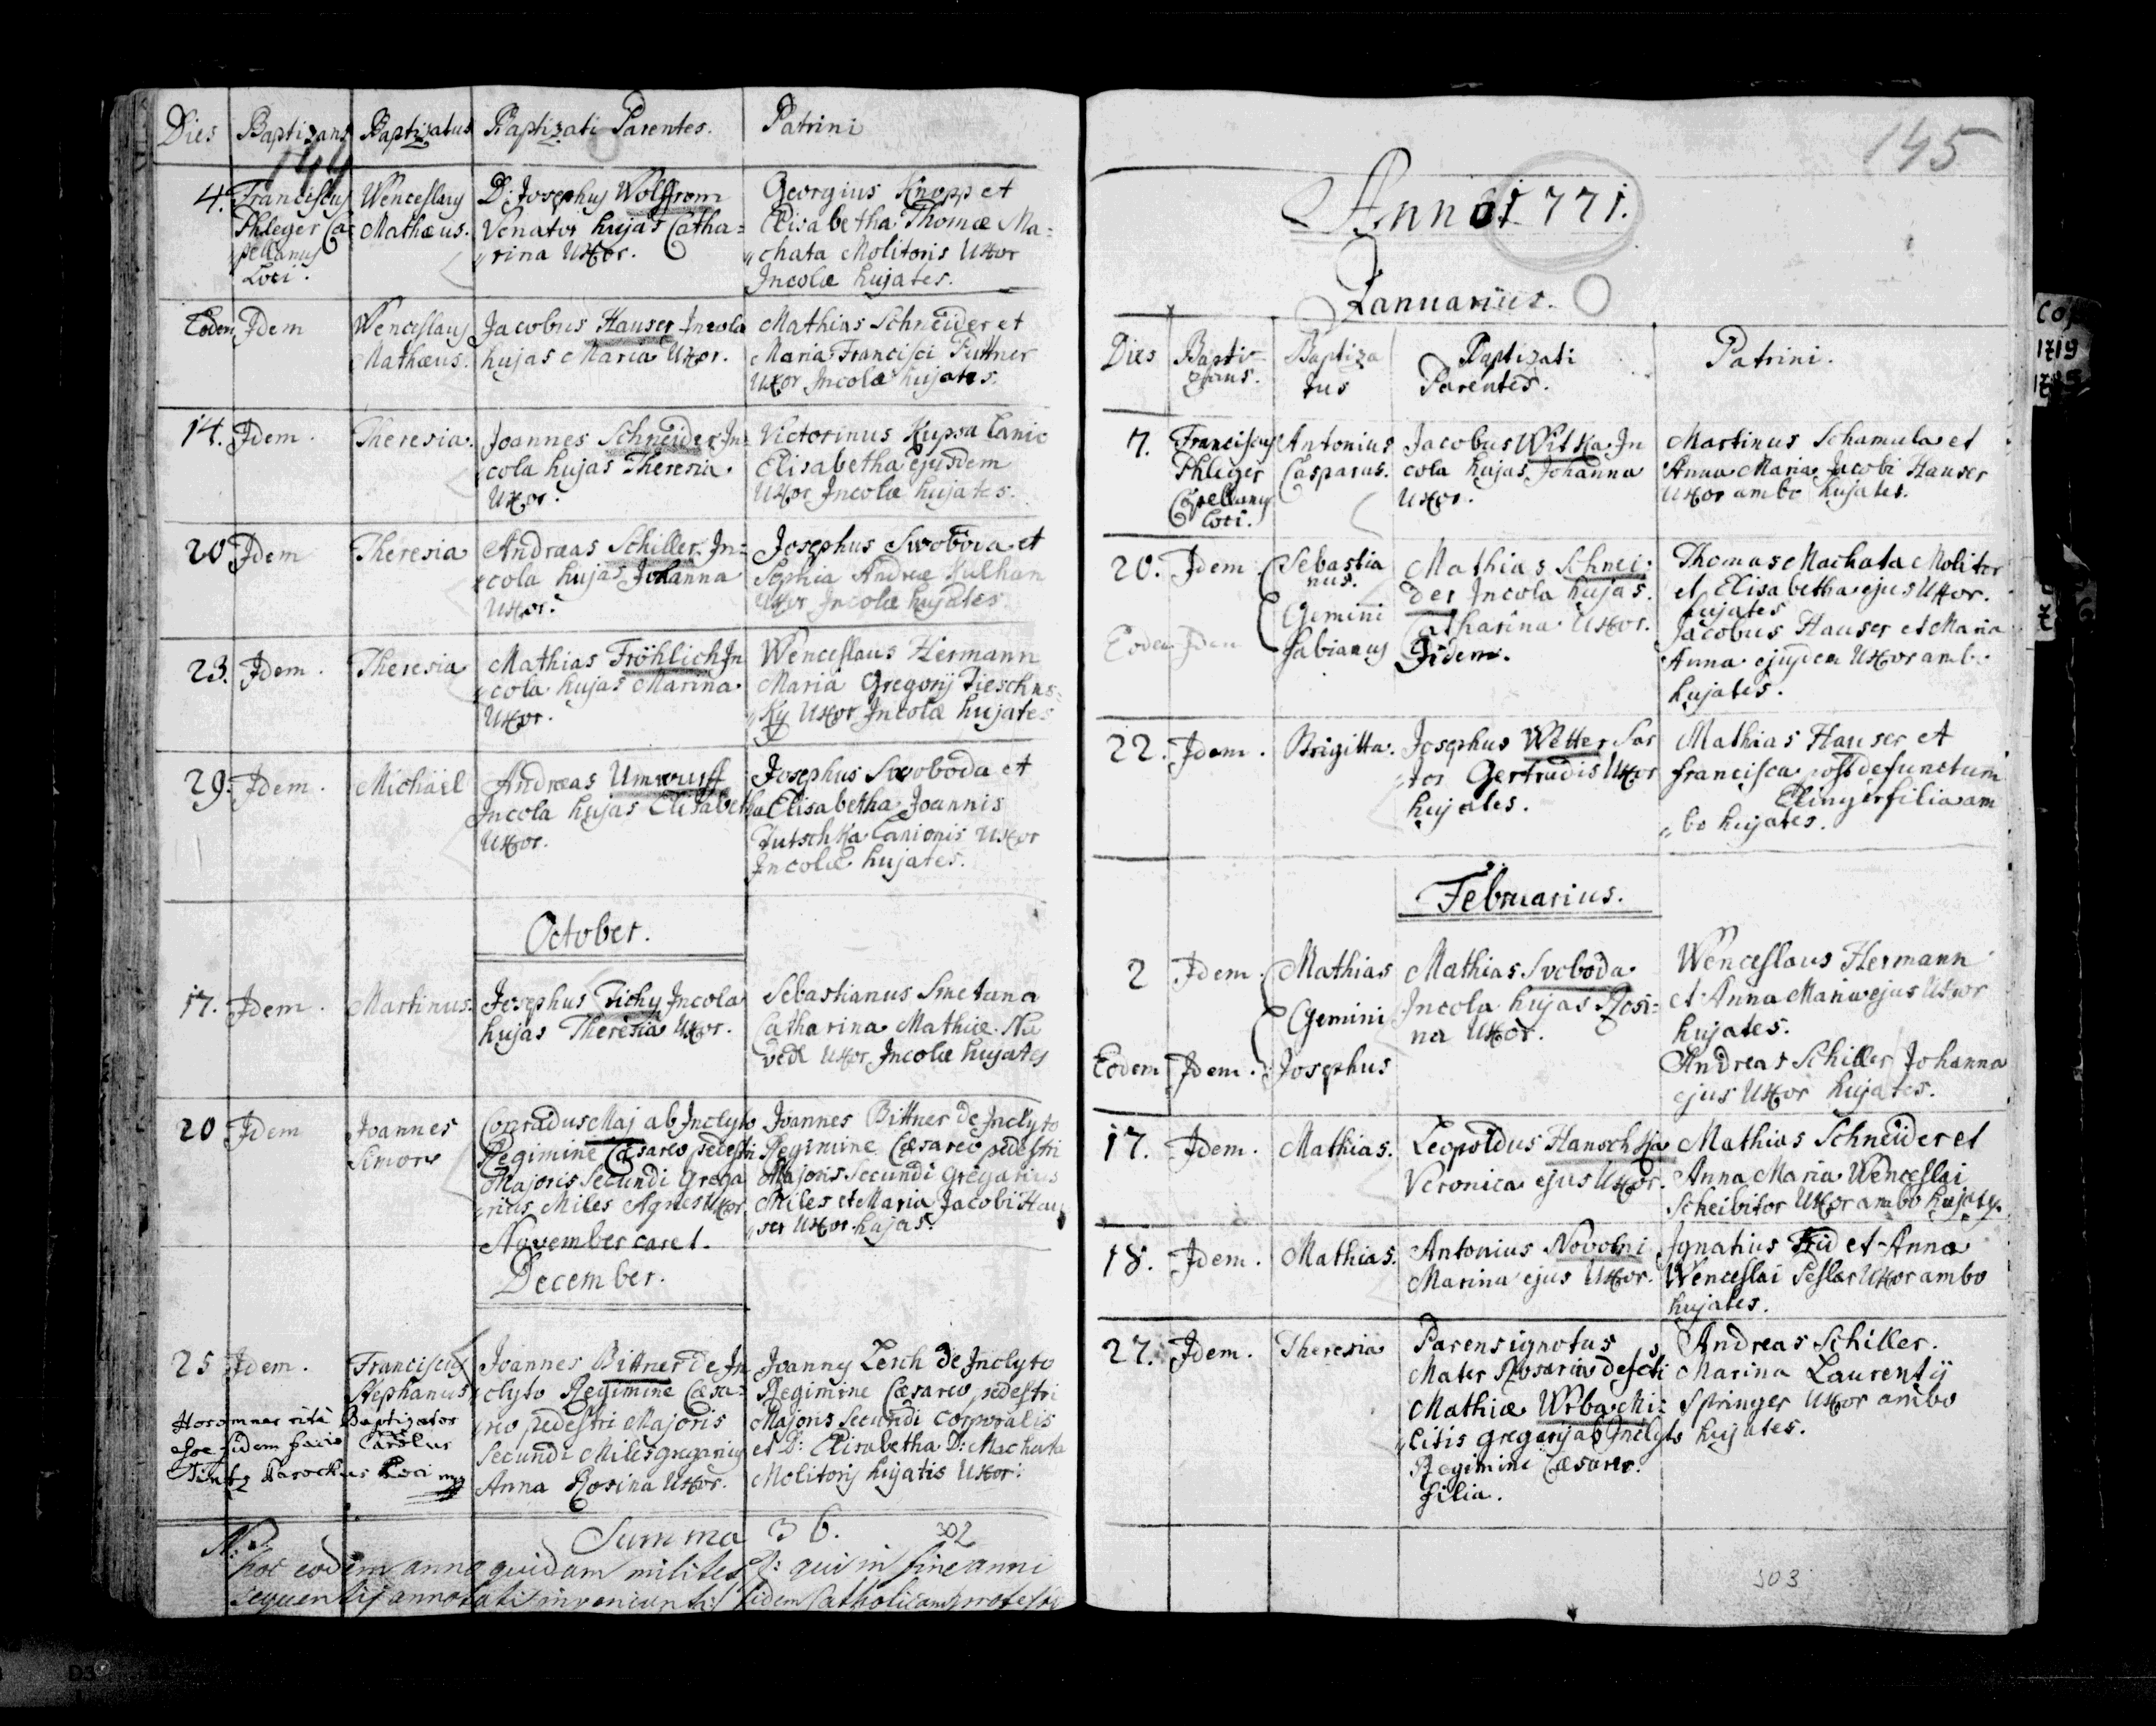 Dies Baptizans Baptizatus Baptizati Parentes. Patrini
144
4. Franciscus Wenceslaus D: Josephus Wolffrom Georgius Knopp et
Phleger Ca= Mathæus. Venator hujas Catha= Elisabetha Thomæ Ma=
pellanus rina Uxor. chata Molitoris Uxor
Loci. Incolæ hujates.
Eodem Idem Wenceslaus Jacobus Hauser Incola Mathias Schneider et
Mathæus. hujas Maria Uxor. Maria Francisci Puttner
Uxor Incolæ hujates.
14. Idem. Theresia. Joannes Schneider In= Victorinus Kuppa Lanio
cola hujas Theresia Elisabetha ejusdem
Uxor. Uxor Incolæ hujates.
20 Idem Theresia Andræas Schiller In= Josephus Swoboda et
cola hujas Johanna Sophia Andreæ Kulhan
Uxor. Uxor Incolæ hujates.
23. Idem. Theresia Mathias Fröhlich In Wenceslaus Hermann
cola hujas Marina Maria Gregorij
Uxor. ky Uxor Incolæ hujates
29. Idem. Michäel Andræas Umwurff Josephus Swoboda et
Incola hujas Elisabetha Elisabetha Joannis
Uxor. Dutschka Lanionis Uxor
Incolæ hujates.
October.
17. Idem. Martinus. Josephus Tichy Incola Sebastianus Smetana
hujas Theresia Uxor. Catharina Mathiæ Nu
vedl Uxor Incolæ hujates
20 Idem Joannes Conradus Maj ab Inclyto Joannes Bittner de Inclyto
Simon Regimine Cæsareo pedestri Regimine Cæsareo pedestri
Majoris Secundi Grega Majoris Secundi Gregarius
rius Miles Agnes Uxor Miles et Maria Jacobi Hau
ser Uxor hujas.
November caret.
December.
25 Idem. Franciscus Joannes Bittner de In Joannes Lerch de Inclyto
Stephanus clyto Regimine Cæsa= Regimine Cæsareo pedestri
reo pedestri Majoris Majoris Secundi Corporalis
Secundi Miles gregarius et D: Elisabetha D: Machata
Anna Rosina Uxor. Molitoris hujatis Uxor.
Horum rite Baptizator
fidem facio Carolus
Parochus Loci mp
Summa 36. 302
NB
hoc eodem anno quidam milites qui in fine anni
sequentis annotati inveniuntur fidem Catholicam
145
Anno 1771.
Januarius.
Dies Bapti= Baptiza Baptizati Patrini.
zans. tus Parentes.
7. Franciscus Antonius Jacobus Witka In Martinus Schamula et
Phleger Casparus. cola hujas Johanna Anna Maria Jacobi Hauser
Capellanus Uxor. Uxor ambo hujates.
Loci.
20. Idem. Sebastia Mathias Schnei: Thomas Machata Molitor
nus. der Incola hujas. et Elisabetha ejus Uxor.
Gemini Catharina Uxor. hujates
Eodem Idem Fabianus Iidem. Jacobus Hauser et Maria
Anna ejusdem Uxor ambo
hujates.
22. Idem. Brigitta. Josephus Wetter Sar Mathias Hauser et
tor Gertrudis Uxor Francisca post defunctum
hujates. Elinger filia am
bo hujates.
Februarius.
2 Idem. Mathias Mathias Svoboda Wenceslaus Hermann
Gemini Incola hujas Rosi= et Anna Maria ejus Uxor
na Uxor. hujates.
Eodem Idem. Josephus Andreas Schiller Johanna
ejus Uxor hujates.
17. Idem. Mathias. Leopoldus Hanschka Mathias Schneider et
Veronica ejus Uxor. Anna Maria Wenceslai
Scheibitor Uxor ambo hujates.
18. Idem. Mathias. Antonius Novotni Ignatius Frid et Anna
Marina ejus Uxor. Wenceslai Seslar Uxor ambo
hujates.
27. Idem. Theresia Parens ignotus Andreas Schiller.
Mater Rosaria defcti Marina Laurentij
Mathiæ Wrba Mi: Springer Uxor ambo
litis gregarij ab Inclyto hujates.
Regimine Cæsareo.
filia.
303